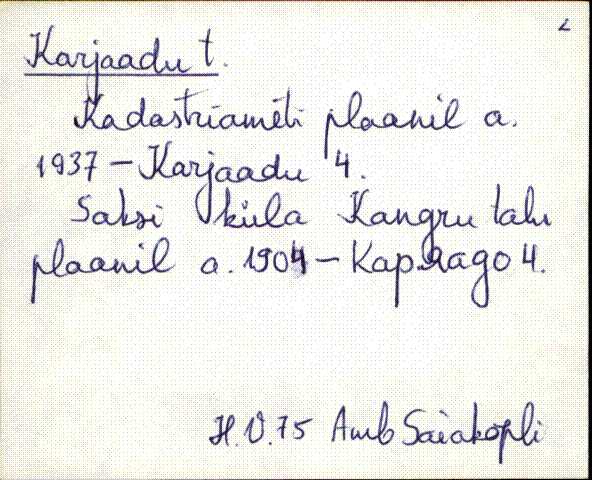 L
Karjaadu t.
Kadastriameti plaanil a.
1937 – Karjaadu 4.
Saksi küla Kangru talu
plaanil a. 1904 – Карьядо 4.
H.V.75 Amb Saiakopli